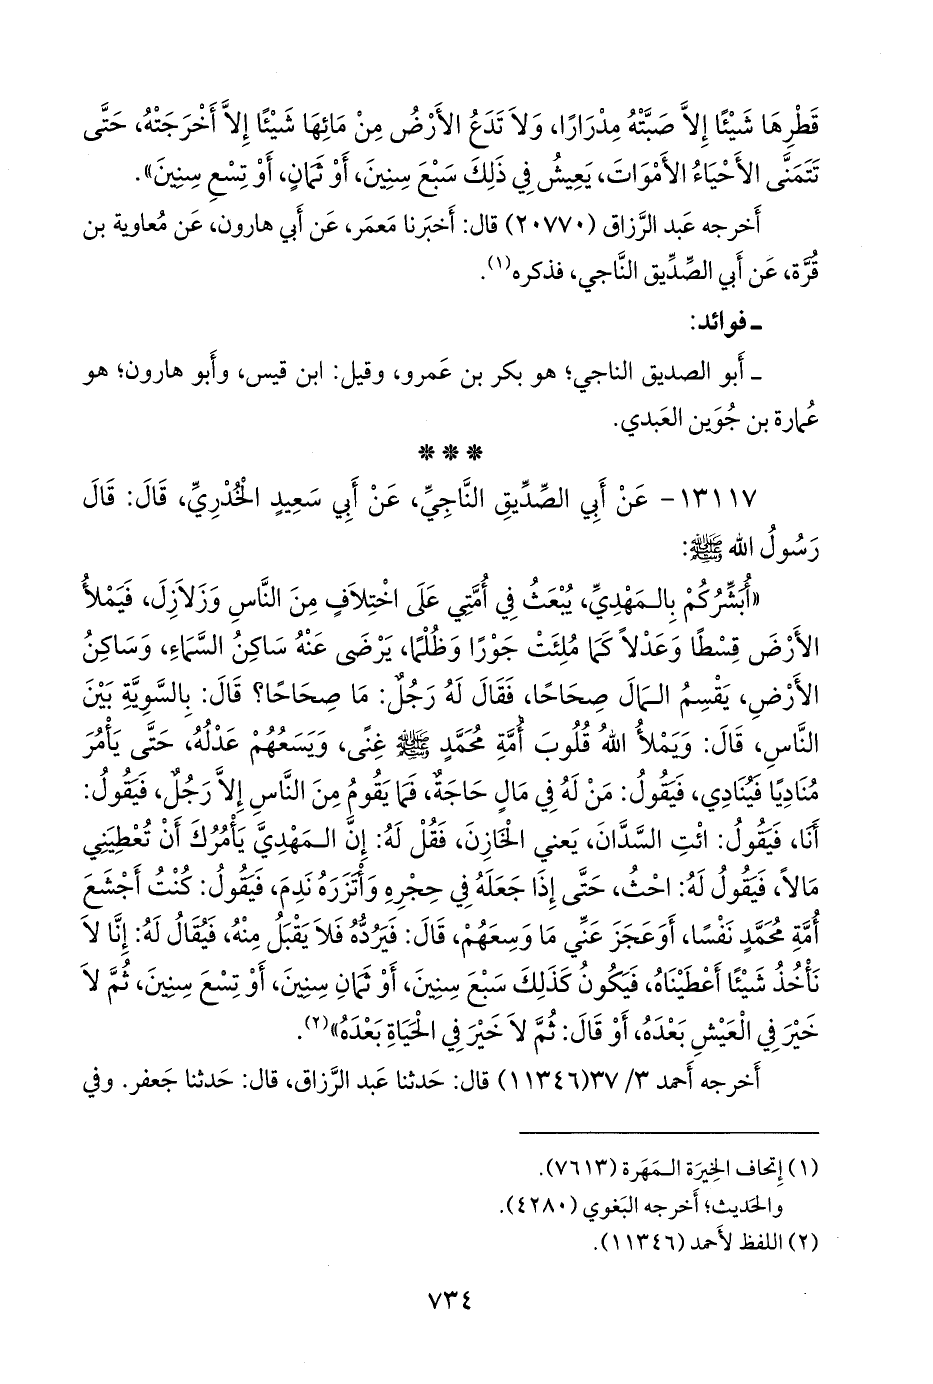 قَطْرِهَا شَيْئًا إِلاَّ صَبَّتْهُ مِدْرَارًا، وَلاَ تَدَعُ الأَرْضُ مِنْ مَائِهَا شَيْئًا إِلاَّ أَخْرَجَتْهُ، حَتَّى
تَتَمَنَّى الأَحْيَاءُ الأَمْوَاتَ، يَعِيشُ فِي ذَلِكَ سَبْعَ سِنِينَ، أَوْ ثَمَانٍ، أَوْ تِسْعِ سِنِينَ».
أَخرجه عَبد الرَّزاق (٢٠٧٧٠) قال: أَخبَرنا مَعمَر، عَن أَبي هارون، عَن مُعاوية بن
قُرَّة، عَن أَبي الصِّدِّيق النَّاجي، فذكره(١).
ـ فوائد:
ـ أَبو الصديق الناجي؛ هو بكر بن عَمرو، وقيل: ابن قيس، وأَبو هارون؛ هو
عُمارة بن جُوَين العَبدي.
***
١٣١١٧- عَنْ أَبِي الصِّدِّيقِ النَّاجِيِّ، عَنْ أَبِي سَعِيدٍ الْخُدْرِيِّ، قَالَ: قَالَ
رَسُولُ الله ﷺ:
«أُبَشِّرُكُمْ بِالْمَهْدِيِّ، يُبْعَثُ فِي أُمَّتِي عَلَى اخْتِلاَفٍ مِنَ النَّاسِ وَزَلاَزِلَ، فَيَمْلأُ
الأَرْضَ قِسْطًا وَعَدْلاً كَمَا مُلِئَتْ جَوْرًا وَظُلْمًا، يَرْضَى عَنْهُ سَاكِنُ السَّمَاءِ، وَسَاكِنُ
الأَرْضِ، يَقْسِمُ الْمَالَ صِحَاحًا، فَقَالَ لَهُ رَجُلٌ: مَا صِحَاحًا؟ قَالَ: بِالسَّوِيَّةِ بَيْنَ
النَّاسِ، قَالَ: وَيَمْلأُ اللهُ قُلُوبَ أُمَّةِ مُحَمَّدٍ ﷺ غِنًى، وَيَسَعُهُمْ عَدْلُهُ، حَتَّى يَأْمُرَ
مُنَادِيًا فَيُنَادِي، فَيَقُولُ: مَنْ لَهُ فِي مَالٍ حَاجَةٌ، فَمَا يَقُومُ مِنَ النَّاسِ إِلاَّ رَجُلٌ، فَيَقُولُ:
أَنَا، فَيَقُولُ: ائْتِ السَّدَّانَ، يَعنِي الْخَازِنَ، فَقُلْ لَهُ: إِنَّ الْمَهْدِيَّ يَأْمُرُكَ أَنْ تُعْطِيَنِي
مَالاً، فَيَقُولُ لَهُ: احْثُ، حَتَّى إِذَا جَعَلَهُ فِي حِجْرِهِ وَأْتَزَرَهُ نَدِمَ، فَيَقُولُ: كُنْتُ أَجْشَعَ
أُمَّةِ مُحَمَّدٍ نَفْسًا، أَوَعَجَزَ عَنِّي مَا وَسِعَهُمْ، قَالَ: فَيَرُدُّهُ فَلاَ يَقْبَلُ مِنْهُ، فَيُقَالُ لَهُ: إِنَّا لاَ
نَأْخُذُ شَيْئًا أَعْطَيْنَاهُ، فَيَكُونُ كَذَلِكَ سَبْعَ سِنِينَ، أَوْ ثَمَانِ سِنِينَ، أَوْ تِسْعَ سِنِينَ، ثُمَّ لاَ
خَيْرَ فِي الْعَيْشِ بَعْدَهُ، أَوْ قَالَ: ثُمَّ لاَ خَيْرَ فِي الْحَيَاةِ بَعْدَهُ»(٢).
أَخرجه أَحمد ٣/ ٣٧(١١٣٤٦) قال: حَدثنا عَبد الرَّزاق، قال: حَدثنا جَعفر. وفي
(١) إِتحاف الخِيرَة الـمَهَرة (٧٦١٣).
والحَديث؛ أَخرجه البَغوي (٤٢٨٠).
(٢) اللفظ لأَحمد (١١٣٤٦).
٧٣٤